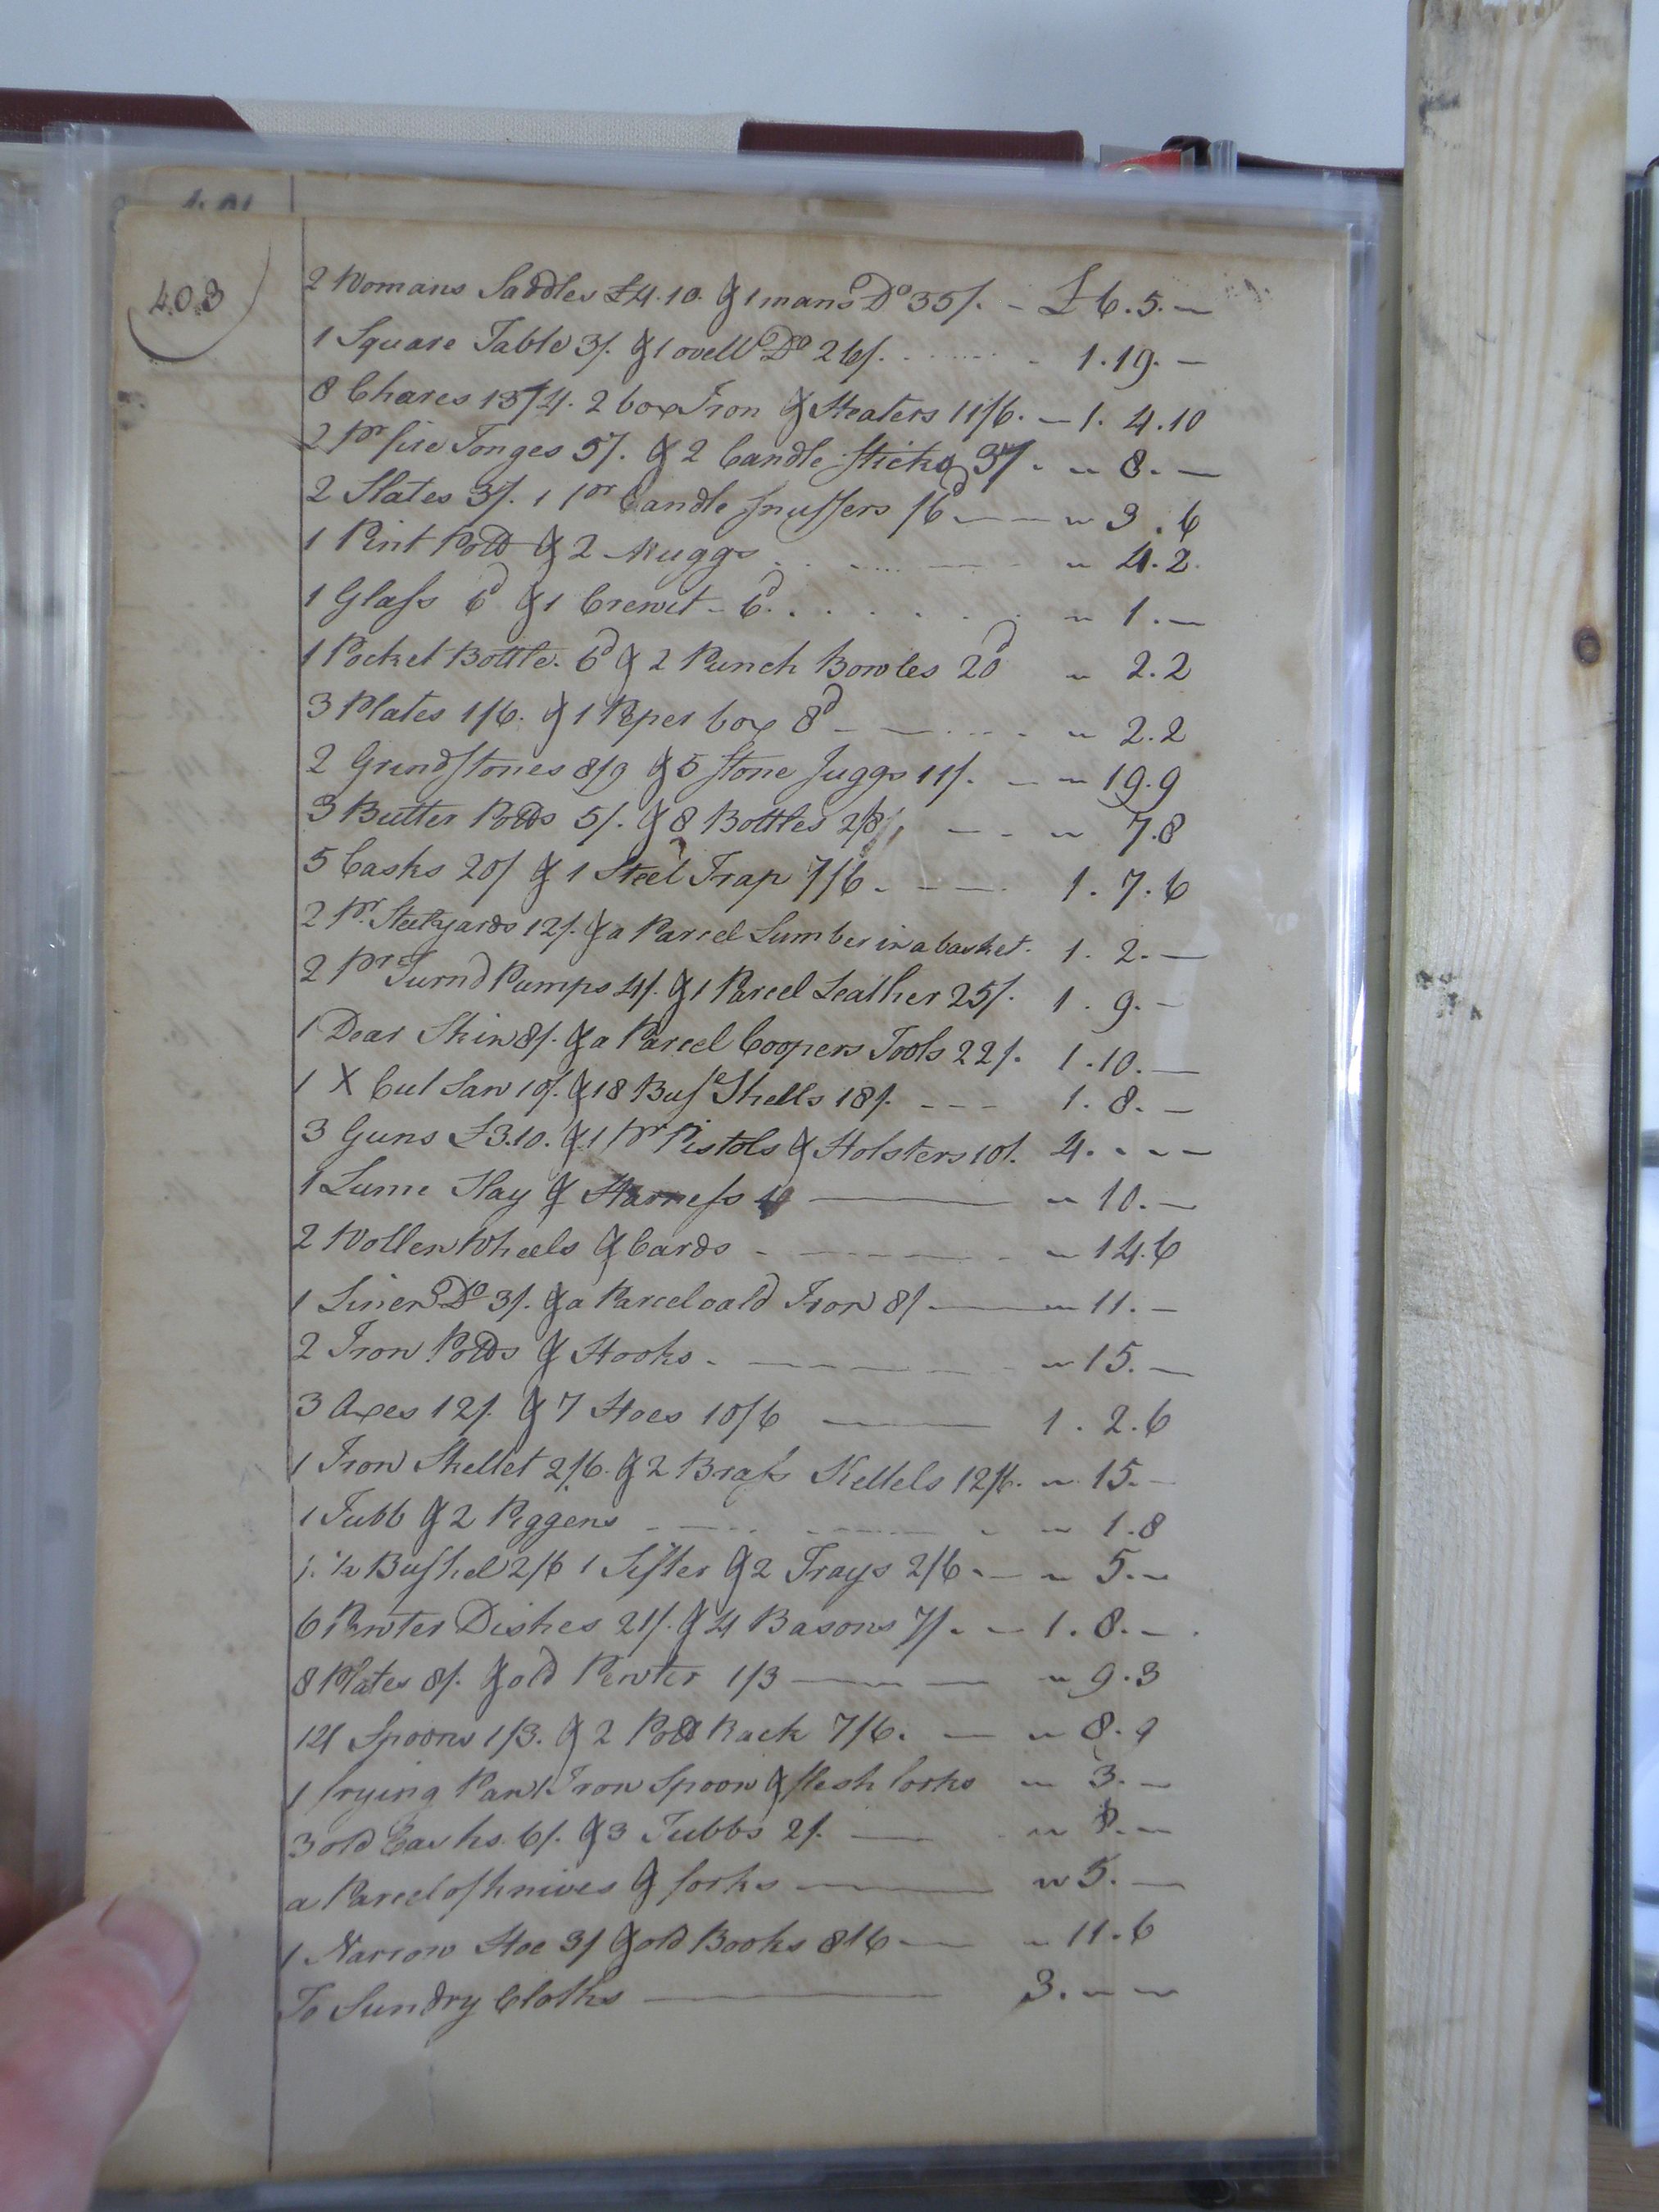 403
2 Womans Saddles £4.10. & 1 mans Do 35/. - £6.5.—
1 Square Table 3/. & 1 ovell Do 26/. . . . . . . . 1.19.—
8 Chares 13/4. 2 box Iron & Heaters 11/6. — 1.4.10
2 pr fire Tonges 5/. & 2 Candle Sticks 3/. . " 8.—
2 Slates 3/. 1 pr Candle Snuffers /6d — — " 3.6
1 Pint Pott & 2 Muggs . . . . . — - " 4.2.
1 Glass 6d & 1 Crewit - 6d. . . . . . . " 1.—
1 Pocket Bottle. 6d & 2 Punch Bowles 20d " 2.2
3 Plates 1/6. & 1 Peper box 8d - — . . . - " 2.2
2 Grindstones 8/9 & 5 Stone Juggs 11/. — " 19.9
3 Butter Potts 5/. & 8 Bottles 2/8 — - - " 7.8
5 Casks 20/ & 1 Steel Trap 7/6. - — - 1.7.6
2 Pr. Steelyards 12/. & a Parcel Lumber in a basket. 1.2.—
2 pr Turnd Pumps 4/. & 1 Parcel Leather 25/. 1.9.-
1 Dear Skin 8/. & a Parcel Coopers Tools 22/. 1.10.—
1 X Cut Saw 10/. & 18 Busl Shells 18/. - - - 1.8.—
3 Guns £3.10. & 1 pr Pistols & Holsters 10/. 4. - - -
1 Lume Slay & Harness — " 10.—
2 Wollen Wheels & Cards - — — — - " 14.6
1 Linen Do 3/. & a Parcel oald Iron 8/. — " 11.—
2 Iron Potts & Hooks. — — — - " 15.—
3 Axes 12/. & 7 Hoes 10/6 — 1.2.6
1 Iron Skellet 2/6. & 2 Brass Kettels 12/6. " 15.—
1 Tubb & 2 Piggens - — — - " 1.8
1. ½ Bushel 2/6 1 Sifter & 2 Trays 2/6. — " 5.—
6 Pewter Dishes 21/. & 4 Basons 7/. - — 1.8.—.
8 Plates 8/. & old Pewter 1/3 — — " 9.3
14 Spoons 1/3. & 2 Pott Rack 7/6. — " 8.9
1 frying Pan 1 Iron Spoon & flesh forks " 3.—
3 old Casks. 6/. & 3 Tubbs 2/. — " 8.—
a Parcel of knives & forks — " 5.—
1 Narrow Hoe 3/ & old Books 8/6 — " 11.6
To Sundry Cloths — 3. " "